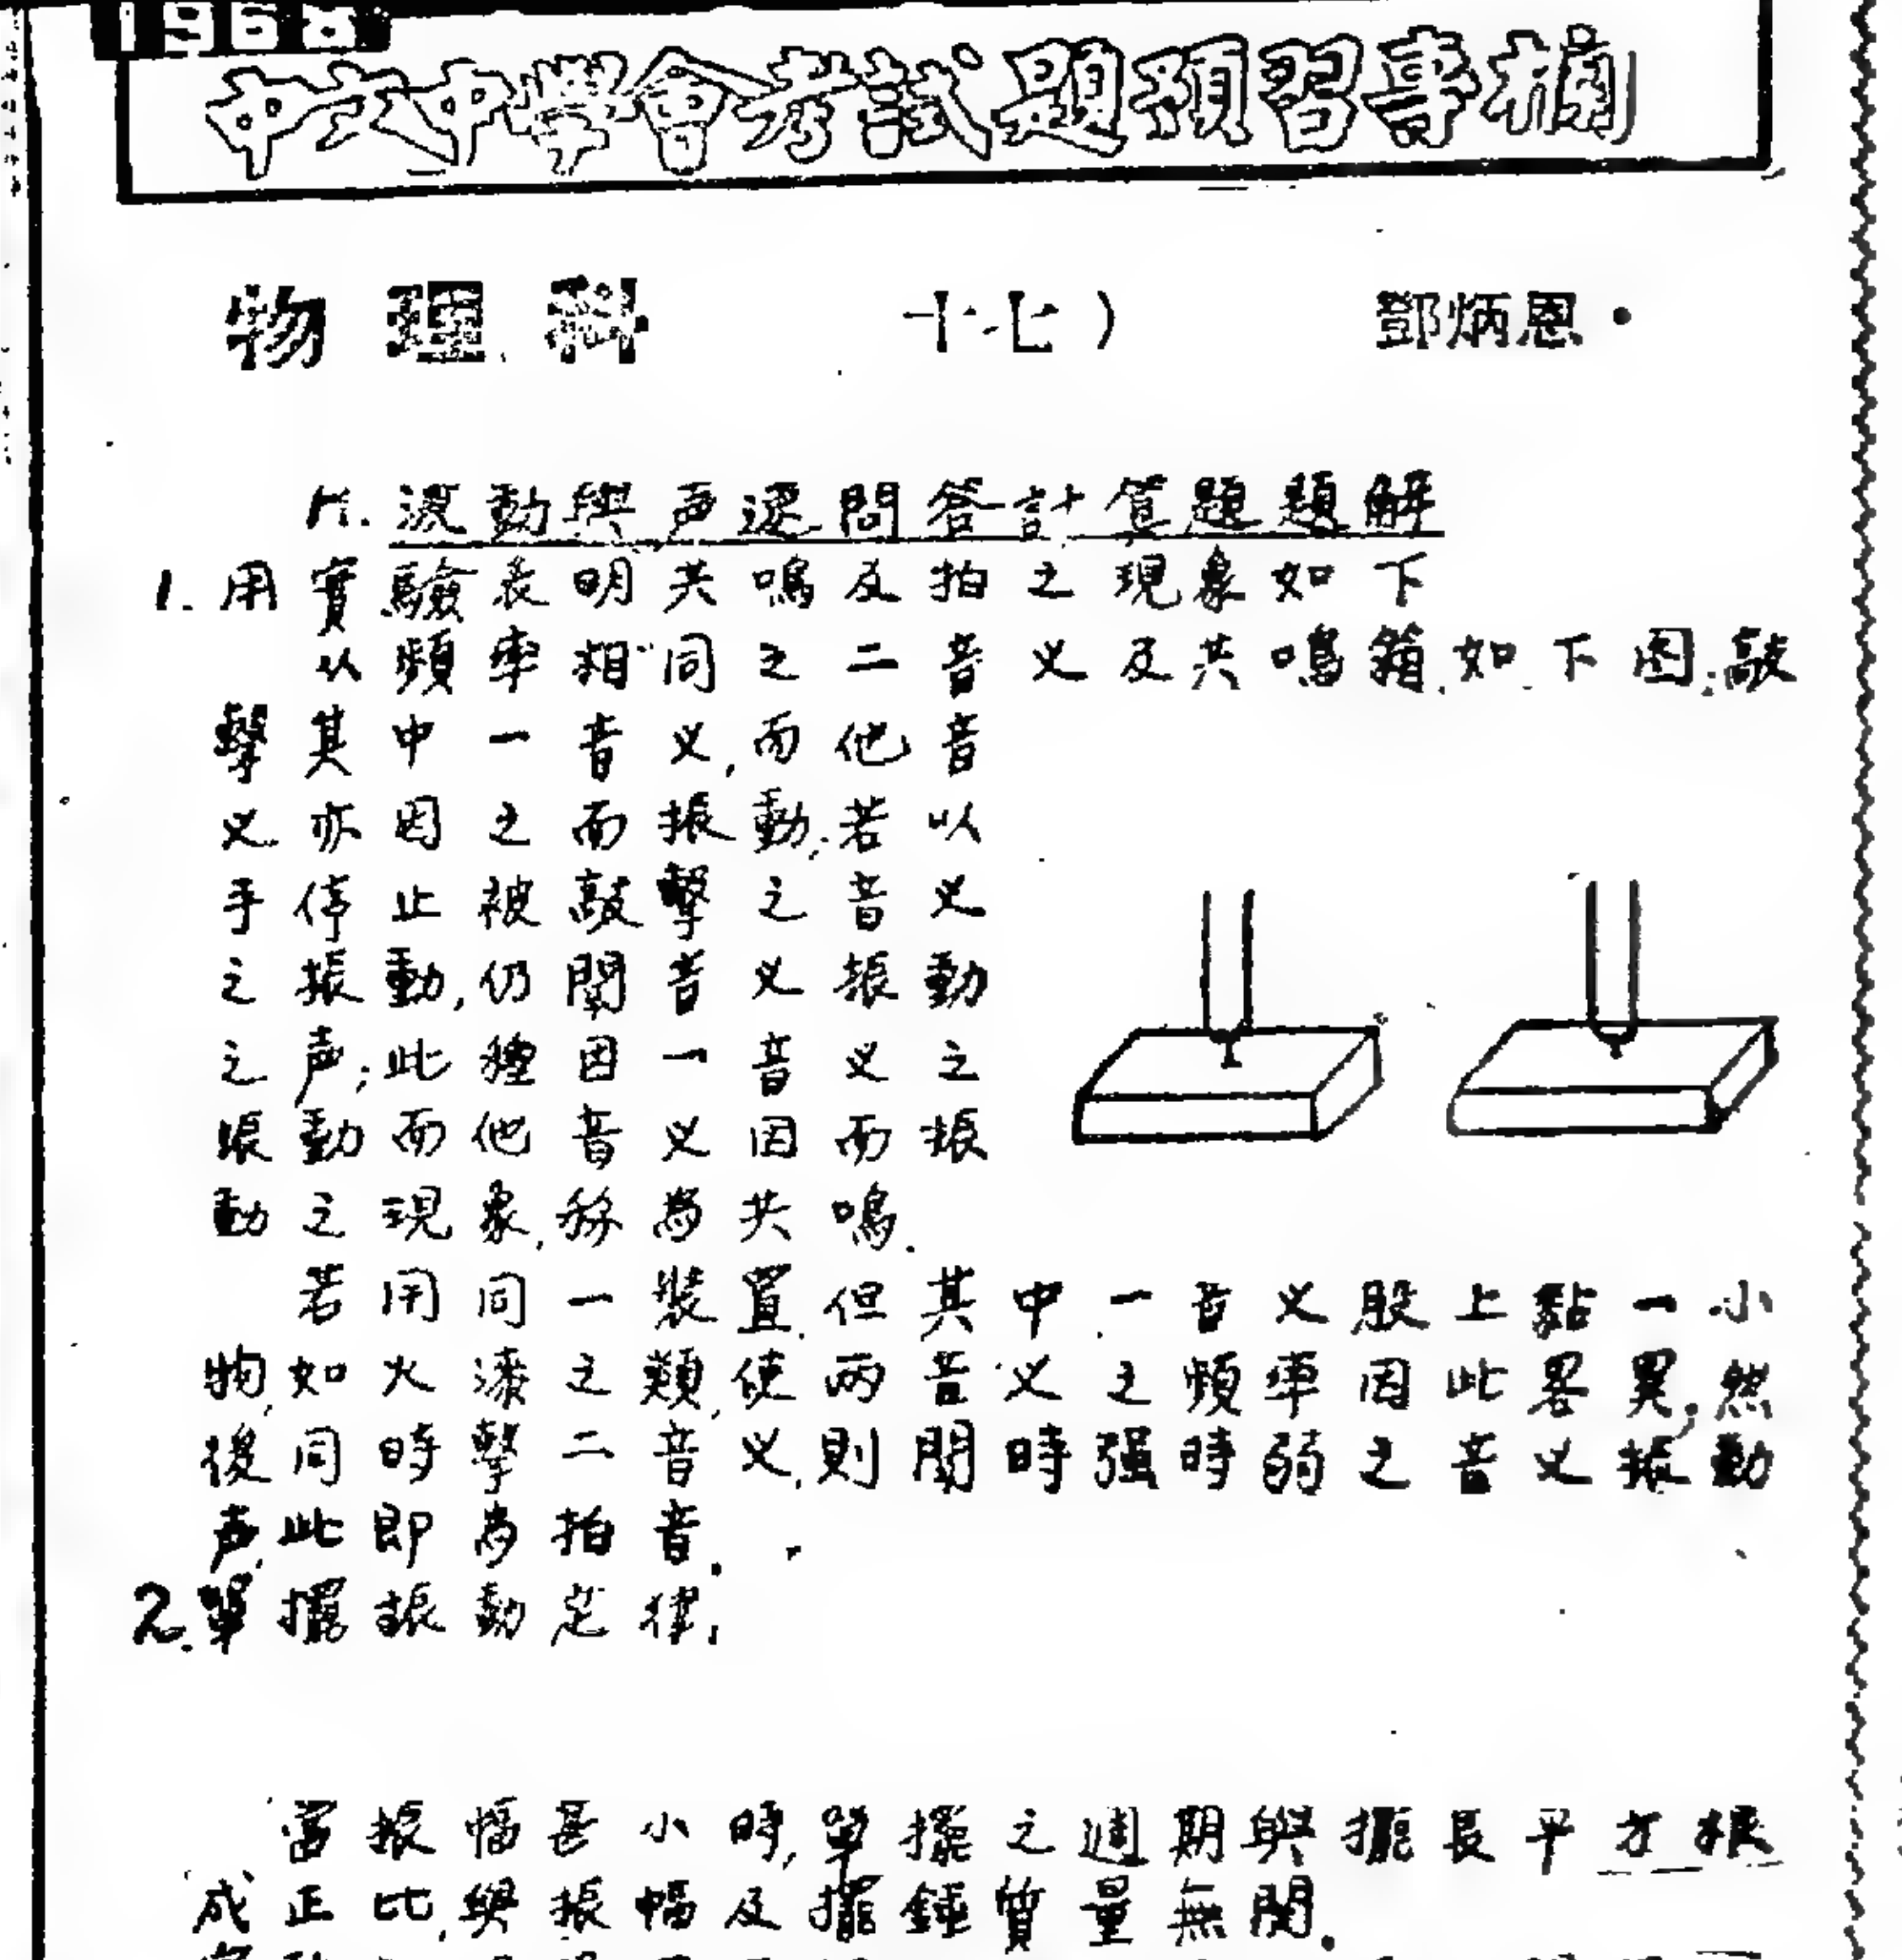 1968
中文中學會考試題預習專摘
物理科 十七） 鄧炳恩·
波動與声速問答計算題題解
1. 用實驗表明共鳴及拍之現象如下
以頻率相同之二音义及共鳴箱.如下图.敲
擊其中一音义,而他音
义亦因之而振動;若以
手停止被敲擊之音义
之振動,仍聞音义振動
之声;此種因一音义之
振動而他音义因而振
動之現象,稱為共鳴.
若用同一裝置.但其中一音义股上黏一小
物,如火漆之類,使兩音义之頻率因此畧異,然
後同時擊二音义,則聞時强時弱之音义振動
声,此即為拍音.
2.單擺振動定律.
當振幅甚小時,單擺之週期與擺長平方根
成正比,與振幅及擺錘質量無関.